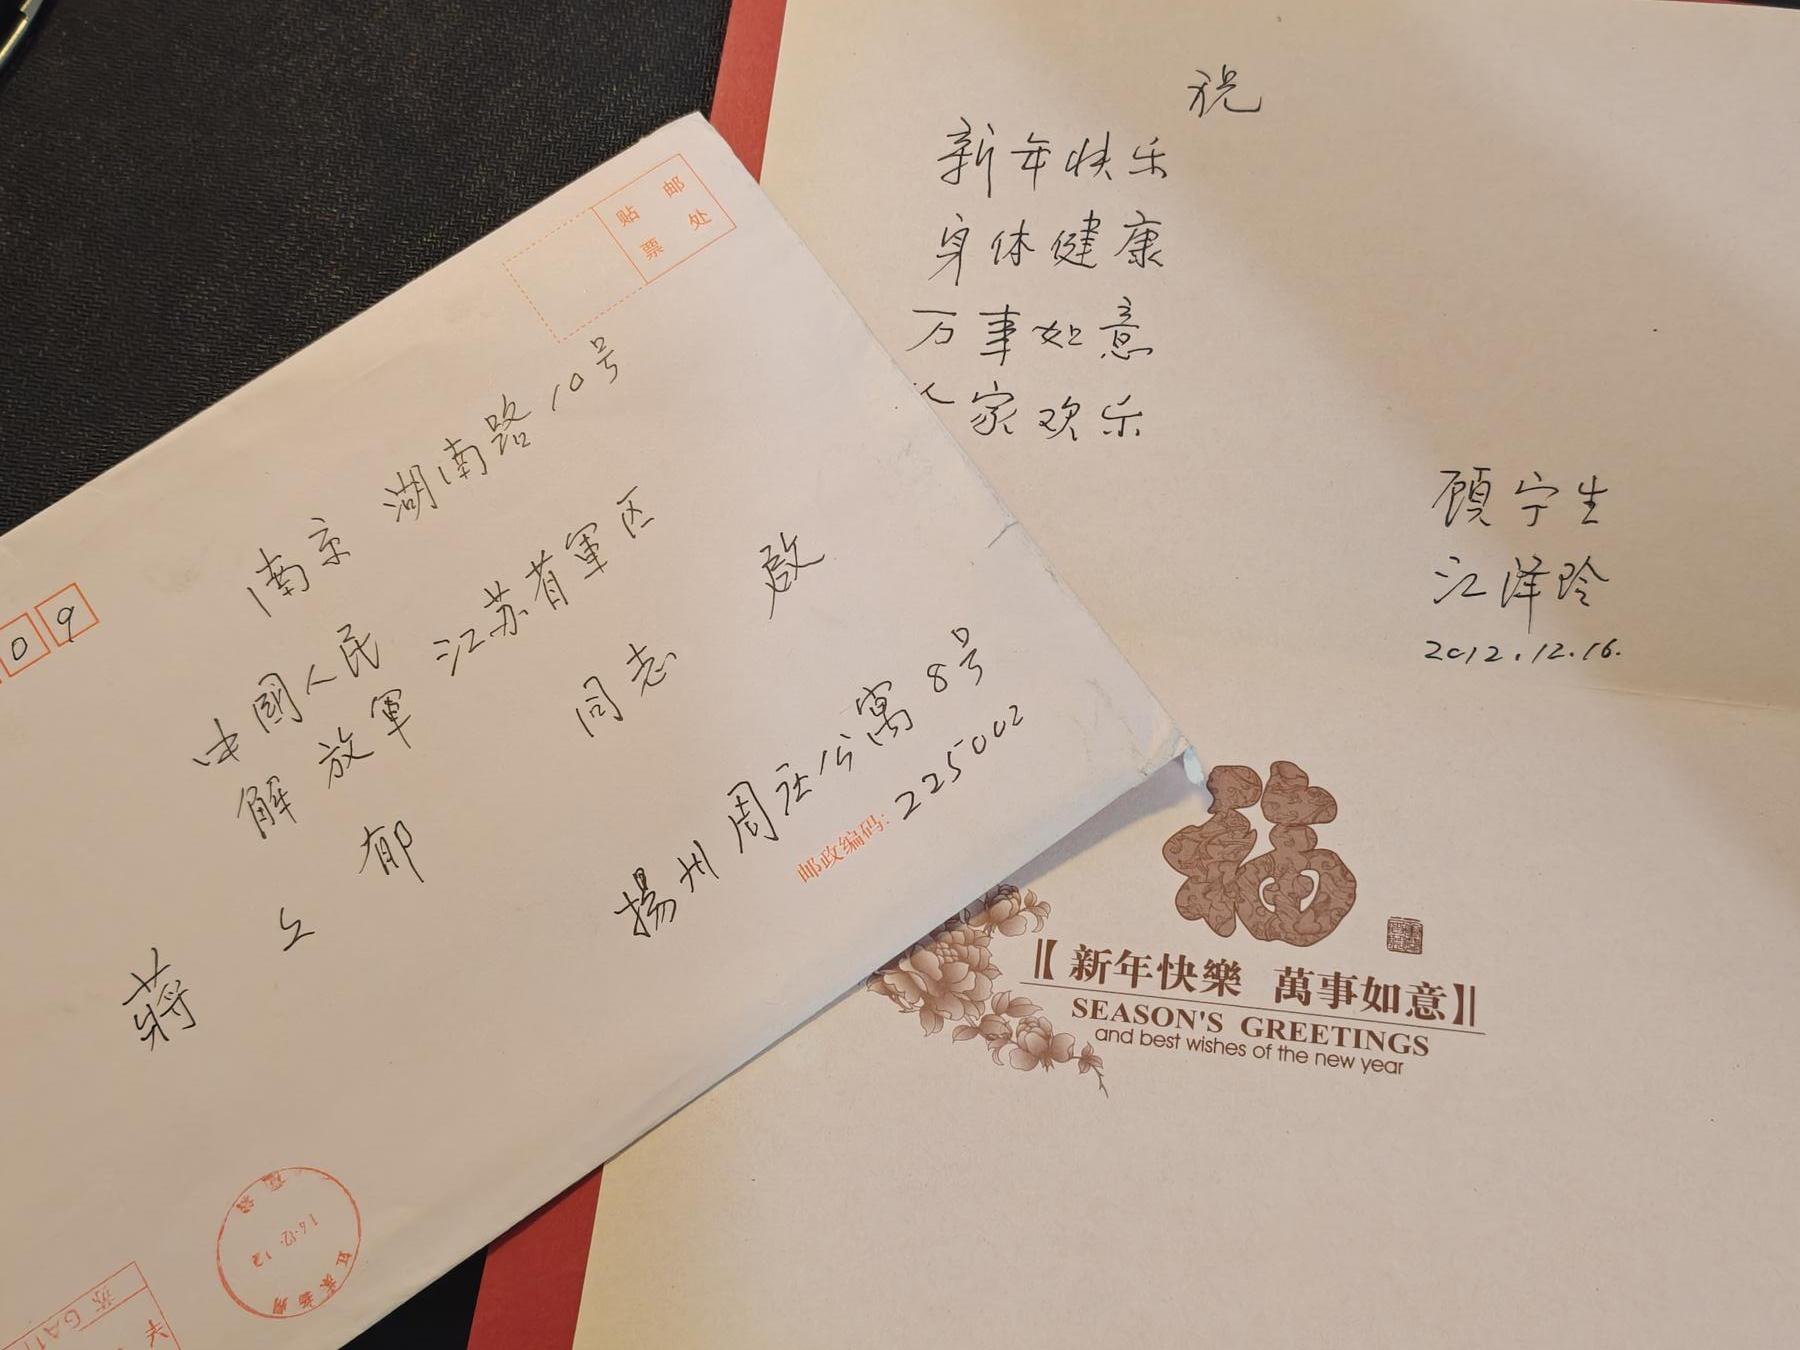 贴 邮
票 处
09
南京 湖南路10号
中國人民
解放軍 江苏省軍区
蒋 上 郁 同志 啟
揚州 周庄公寓8号
邮政编码: 225002
祝
新年快乐
身体健康
万事如意
家欢乐
顾宁生
江泽玲
2012.12.16.
福
新年快樂 萬事如意
SEASON'S GREETINGS
and best wishes of the new year